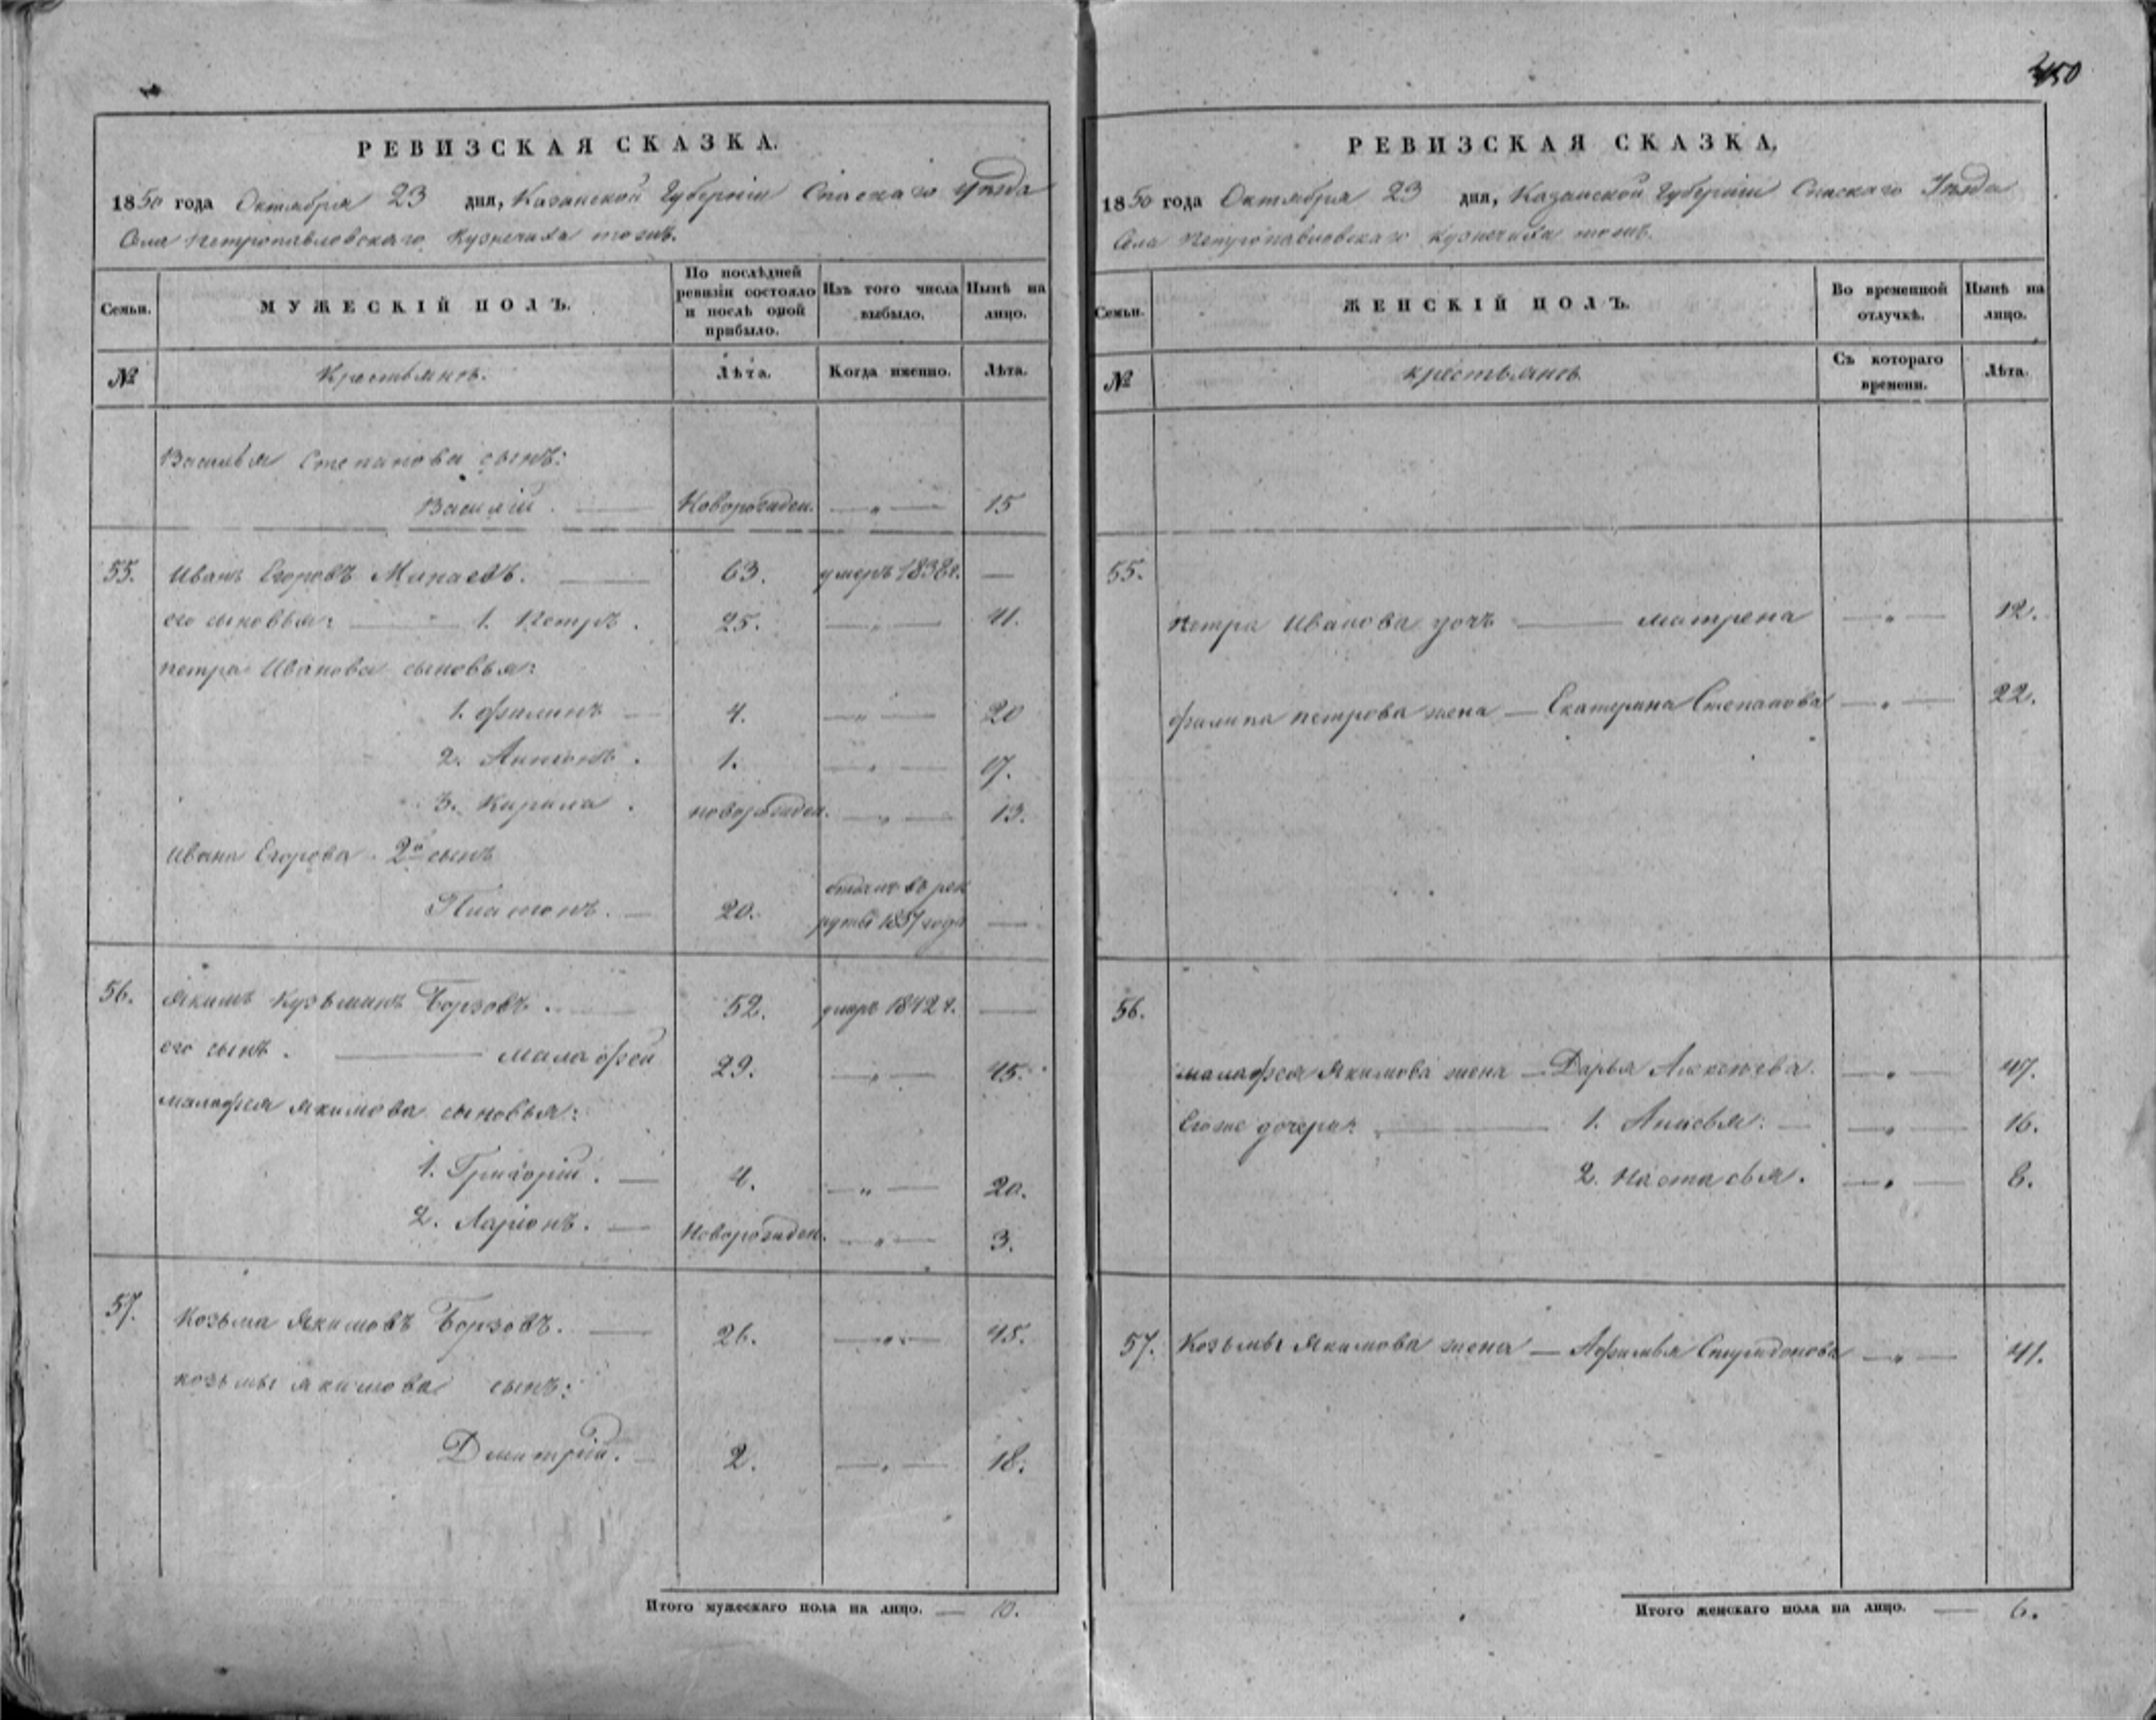 450
РЕВИЗСКАЯ СКАЗКА.
1850 года Октября 23 дня, Казанской Губерніи Спаскаго Уѣзда
Села Петропавловскаго Кузнечиха тожъ.
Семьи. МУЖЕСКІЙ ПОЛЪ. По послѣдней ревизіи состояло и послѣ оной прибыло. Изъ того числа выбыло. Нынѣ на лицо.
№ Крестьянъ. Лѣта. Когда именно. Лѣта.
Василья Степанова сынъ:
Василій. Новорожден. — „ — 15
55. Иванъ Егоровъ Минаевъ. — 63. умеръ 1838 г. —
его сыновья: — 1. Петръ. 25. — „ — 41.
петра Иванова сыновья:
1. филипъ — 4. — „ — 20
2. Антонъ. 1. — „ — 17.
3. Кирила. новорожден. — „ — 13.
Ивана Егорова 2й сынъ
Платонъ. — 20. отданъ въ рек
руты 1837 года —
56. Якимъ Кузьминъ Борзовъ. 52. умеръ 1842 г. —
его сынъ. — малафей 29. — „ — 45.
малафея якимова сыновья:
1. Григорій. — 4. — „ — 20.
2. Ларіонъ. — Новорожден. — „ — 3.
57. Козьма Якимовъ Борзовъ. — 26. — „ — 45.
козьмы якимова сынъ:
Дмитрій. — 2. — „ — 18.
Итого мужескаго пола на лицо. — 10.
РЕВИЗСКАЯ СКАЗКА.
1850 года Октября 23 дня, Казанской Губерніи Спаскаго Уѣзда
Села Петропавловскаго Кузнечиха тожъ.
Семьи. ЖЕНСКІЙ ПОЛЪ. Во временной отлучкѣ. Нынѣ на лицо.
№ крестьянъ Съ котораго времени. Лѣта.
55.
Петра Иванова дочь — матрена — „ — 12.
филипа петрова жена — Екатерина Степанова — „ — 22.
56.
малафея Якимова жена — Дарья Алексеева. — „ — 47.
Егоже дочери: — 1. Анисья. — — „ — 16.
2. Настасья. — „ — 8.
57. Козьмы Якимова жена — Афимья Спиридонова — „ — 41.
Итого женскаго пола на лицо. — 6.